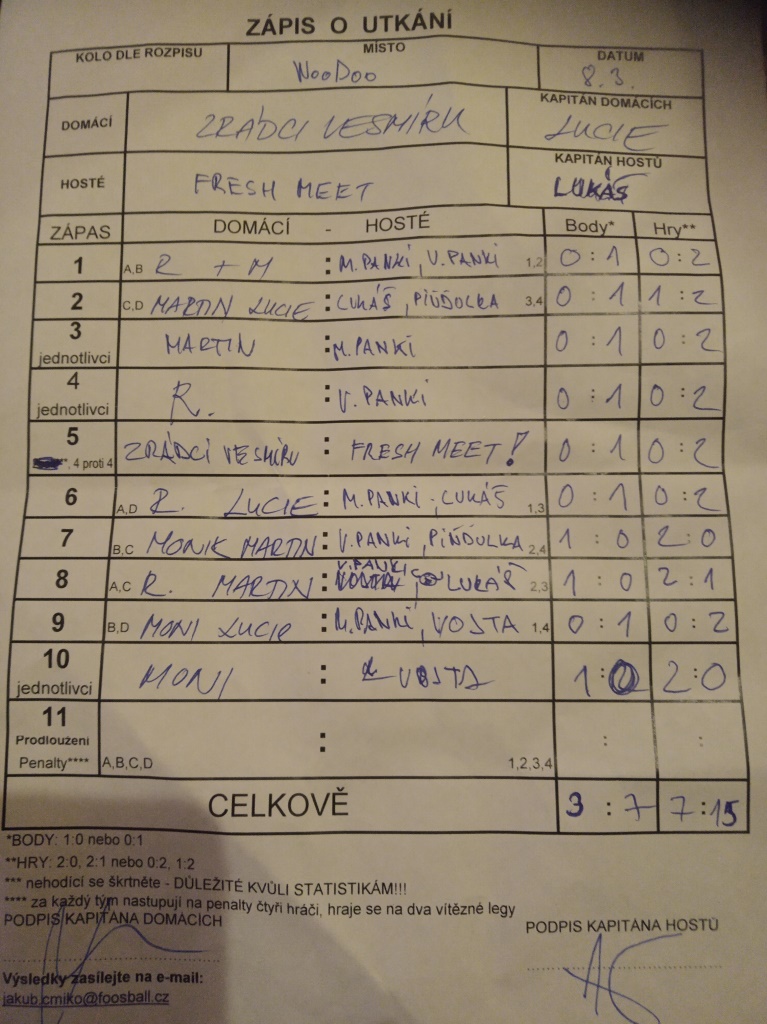 ZÁPIS O UTKÁNÍ
KOLO DLE ROZPISU MÍSTO DATUM
WooDoo 8.3.
DOMÁCÍ ZRÁDCI VESMÍRU KAPITÁN DOMÁCÍCH
LUCIE
HOSTÉ FRESH MEET KAPITÁN HOSTŮ
LUKÁŠ
ZÁPAS DOMÁCÍ - HOSTÉ Body* Hry**
1 A,B R + M : M.PANKÍ, V.PANKÍ 1,2 0:1 0:2
2 C,D MARTIN LUCIE : LUKÁŠ, PIŇĎULKA 3,4 0:1 1:2
3
jednotlivci MARTIN : M.PANKÍ 0:1 0:2
4
jednotlivci R. : V.PANKÍ 0:1 0:2
5
, 4 proti 4 ZRÁDCI VESMÍRU : FRESH MEET! 0:1 0:2
6 A,D R. LUCIE : M.PANKÍ - LUKÁŠ 1,3 0:1 0:2
7 B,C MONIK MARTIN : V.PANKÍ, PIŇĎULKA 2,4 1:0 2:0
8 A,C R. MARTIN : V.PANKÍ LUKÁŠ 2,3 1:0 2:1
9 B,D MONI LUCIE : M.PANKÍ, VOJTA 1,4 0:1 0:2
10
jednotlivci MONI : VOJTA 1:0 2:0
11
Prodloužení
Penalty**** A,B,C,D : 1,2,3,4 : :
CELKOVĚ 3:7 7:15
*BODY: 1:0 nebo 0:1
**HRY: 2:0, 2:1 nebo 0:2, 1:2
*** nehodící se škrtněte - DŮLEŽITÉ KVŮLI STATISTIKÁM!!!
**** za každý tým nastupují na penalty čtyři hráči, hraje se na dva vítězné legy
PODPIS KAPITÁNA DOMÁCÍCH PODPIS KAPITÁNA HOSTŮ
Výsledky zasílejte na e-mail:
jakub.cmiko@foosball.cz